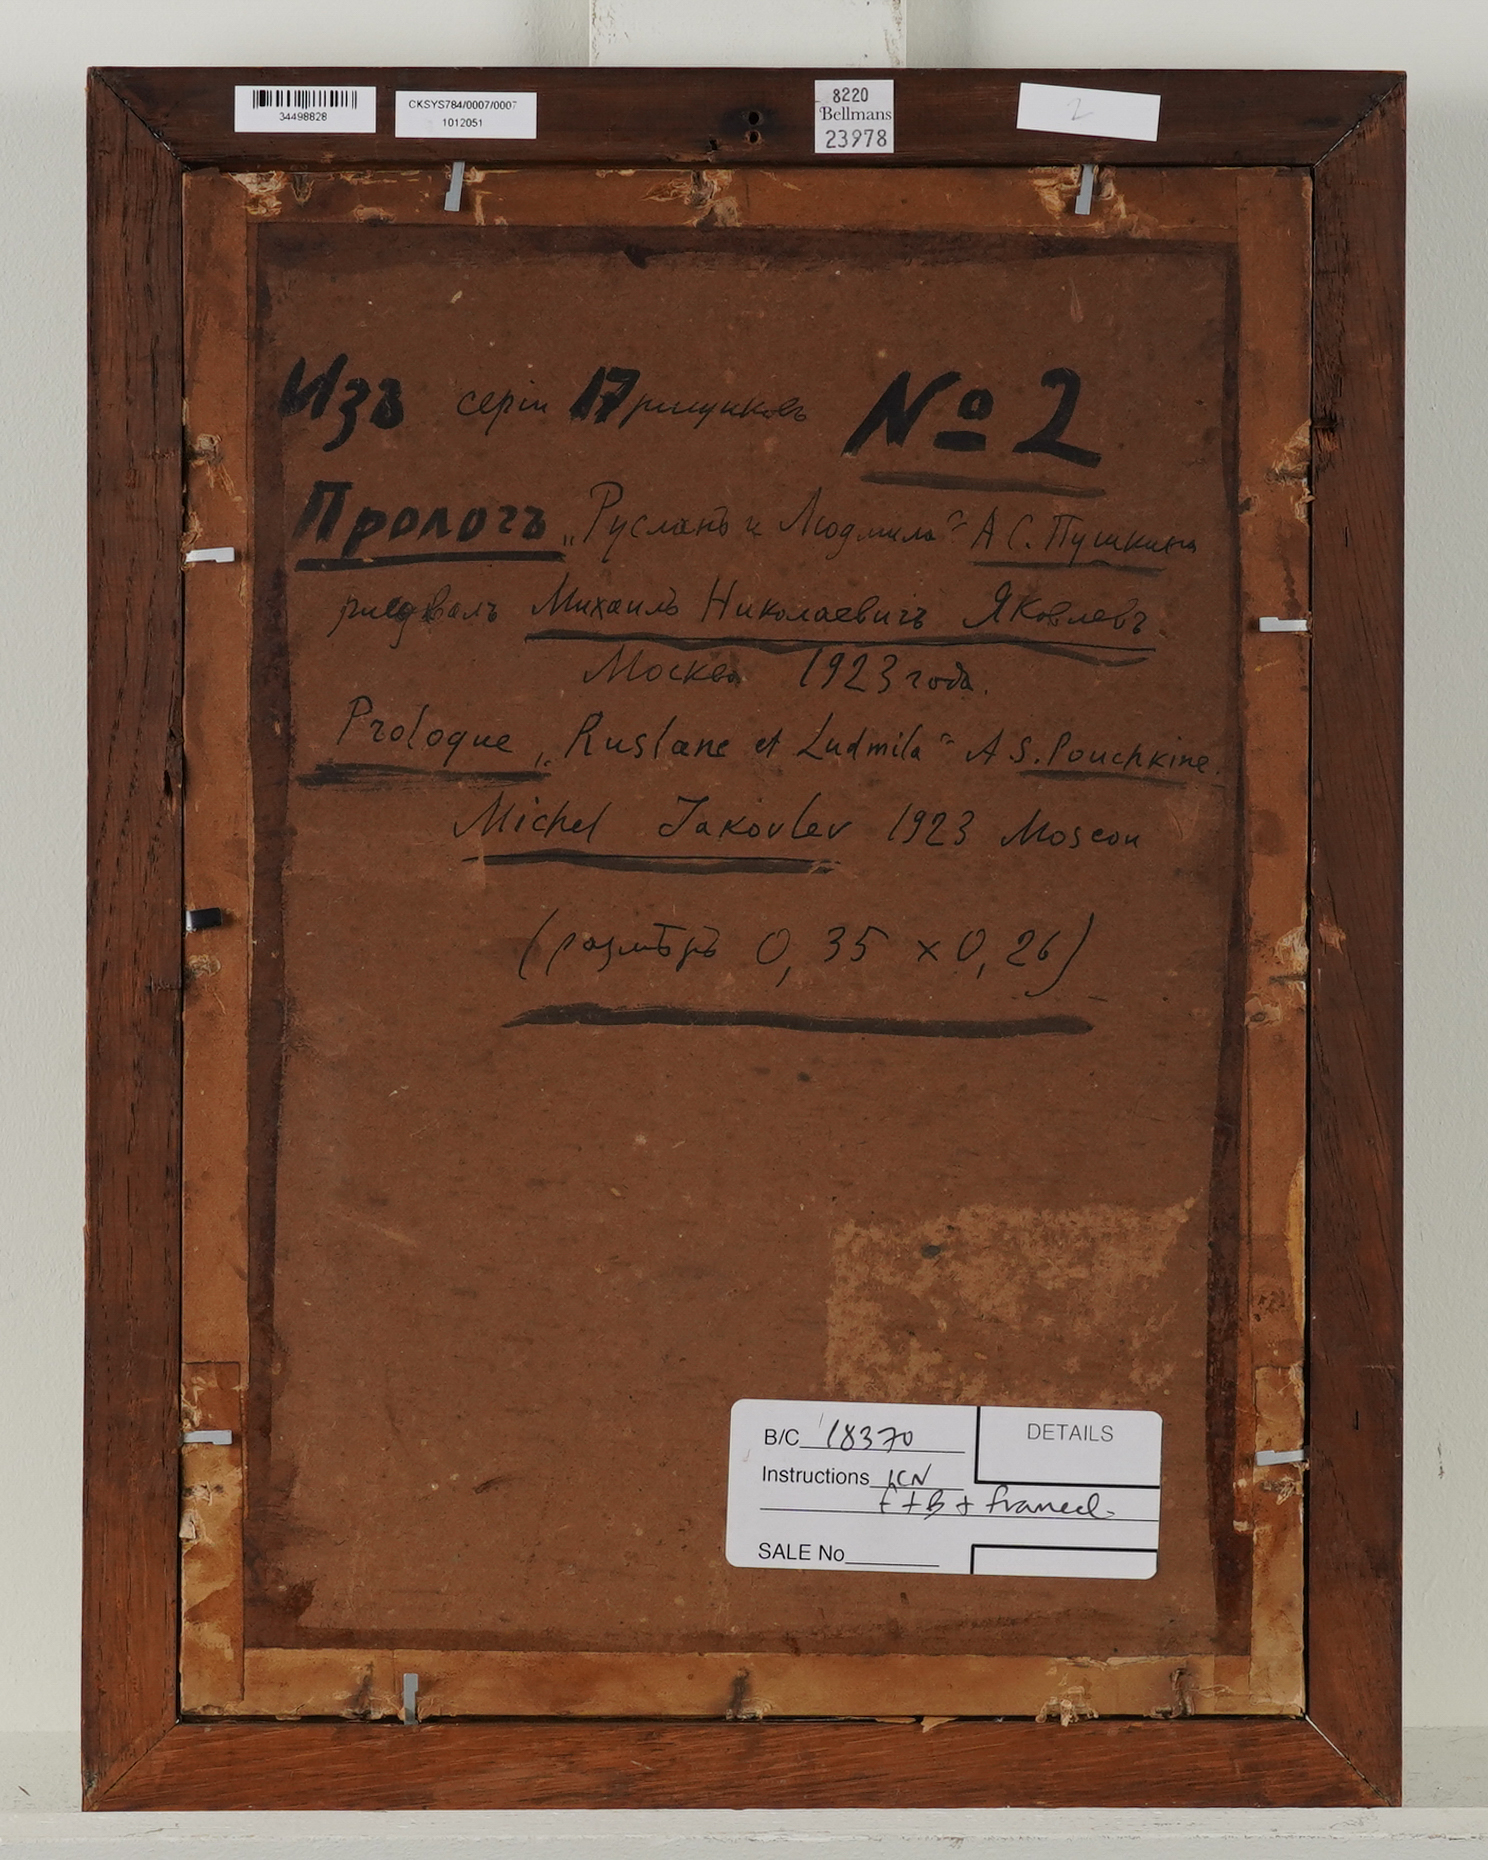 34498828
CKSYS784/0007/0007
1012051
8220
Bellmans
23978
2
Изъ серiи 17 рисунковъ № 2
Прологъ „Русланъ и Людмила“ А С. Пушкина
рисовалъ Михаилъ Николаевичъ Яковлевъ
Москва 1923 года.
Prologue „Ruslane et Ludmila“ A S. Pouchkine.
Michel Jakovlev 1923 Moscou
(размѣръ 0,35 x 0,26)
B/C 18370
DETAILS
Instructions
F+B + framed
SALE No